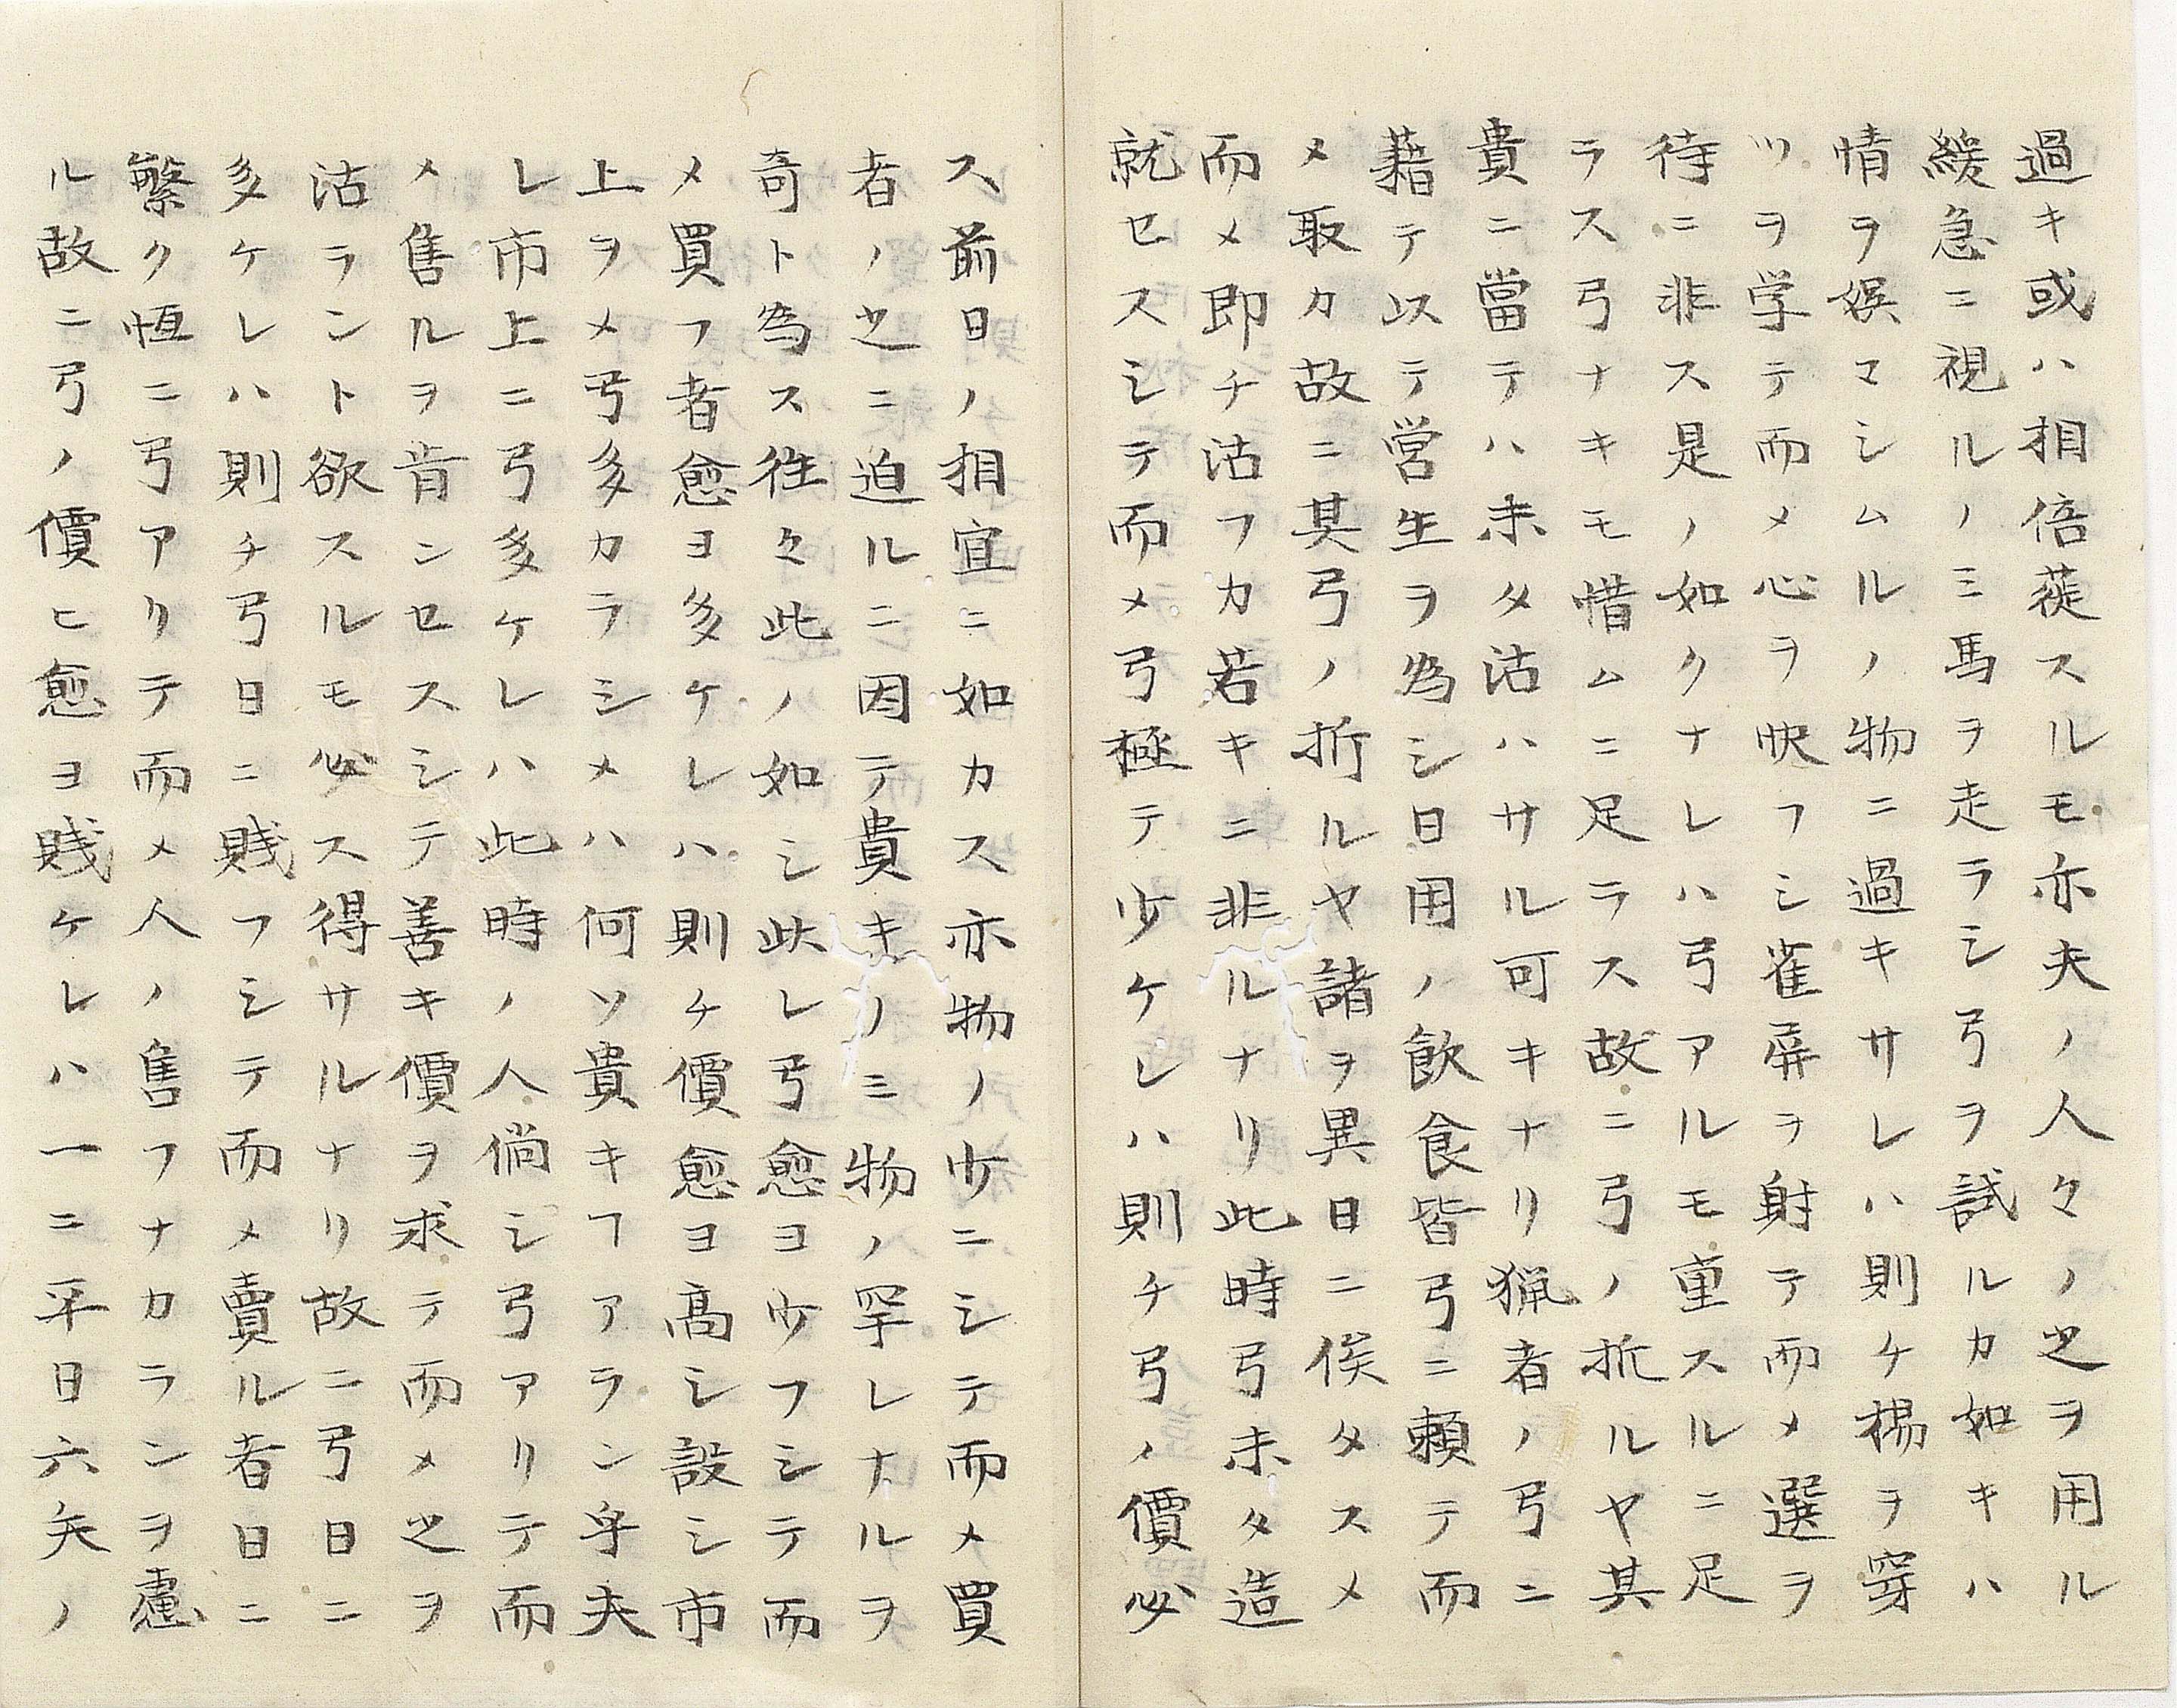 過キ或ハ相倍蓰スルモ亦夫ノ人々ノ之ヲ用ル
緩急ニ視ルノミ馬ヲ走ラシ弓ヲ試ルカ如キハ
情ヲ娯マシムルノ物ニ過キサレハ則ケ楊ヲ穿
ツヲ学テ而メ心ヲ快フシ雀屏ヲ射テ而メ選ヲ
待ニ非ス是ノ如クナレハ弓アルモ重スルニ足
ラス弓ナキモ惜ムニ足ラス故ニ弓ノ折ルヤ其
貴ニ當テハ未タ沽ハサル可キナリ猟者ノ弓ニ
藉テ以テ営生ヲ為シ日用ノ飲食皆弓ニ頼テ而
メ取カ故ニ其弓ノ折ルヤ諸ヲ異日ニ俟タスメ
而メ即チ沽フカ若キニ非ルナリ此時弓未タ造
就セスシテ而メ弓極テ少ケレハ則チ弓ノ價必
ス前日ノ相宜ニ如カス亦物ノ少ニシテ而メ買
者ノ之ニ迫ルニ因テ貴キノミ物ノ罕レナルヲ
奇ト為ス往々此ノ如シ此レ弓愈ヨ少フシテ而
メ買フ者愈ヨ多ケレハ則チ價愈ヨ高シ設シ市
上ヲメ弓多カラシメハ何ソ貴キヿアラン乎夫
レ市上ニ弓多ケレハ此時ノ人倘シ弓アリテ而
メ售ルヲ肯ンセスシテ善キ價ヲ求テ而メ之ヲ
沽ラント欲スルモ必ス得サルナリ故ニ弓日ニ
多ケレハ則チ弓日ニ賎フシテ而メ賣ル者日ニ
繁ク恒ニ弓アリテ而メ人ノ售フナカランヲ慮
ル故ニ弓ノ價ヒ愈ヨ賎ケレハ一ニ平日六矢ノ